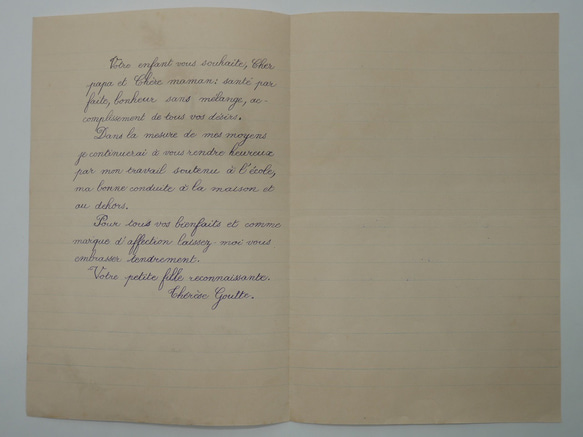 Votre enfant vous souhaite, Cher
papa et Chère maman: santé par
faite, bonheur sans mélange, ac-
complissement de tous vos désirs.
Dans la mesure de mes moyens
je continuerai à vous rendre heureux
par mon travail soutenu à l'école,
ma bonne conduite à la maison et
au dehors.
Pour tous vos bienfaits et comme
marque d'affection laissez-moi vous
embrasser tendrement.
Votre petite fille reconnaissante.
Thérèse Goutte.